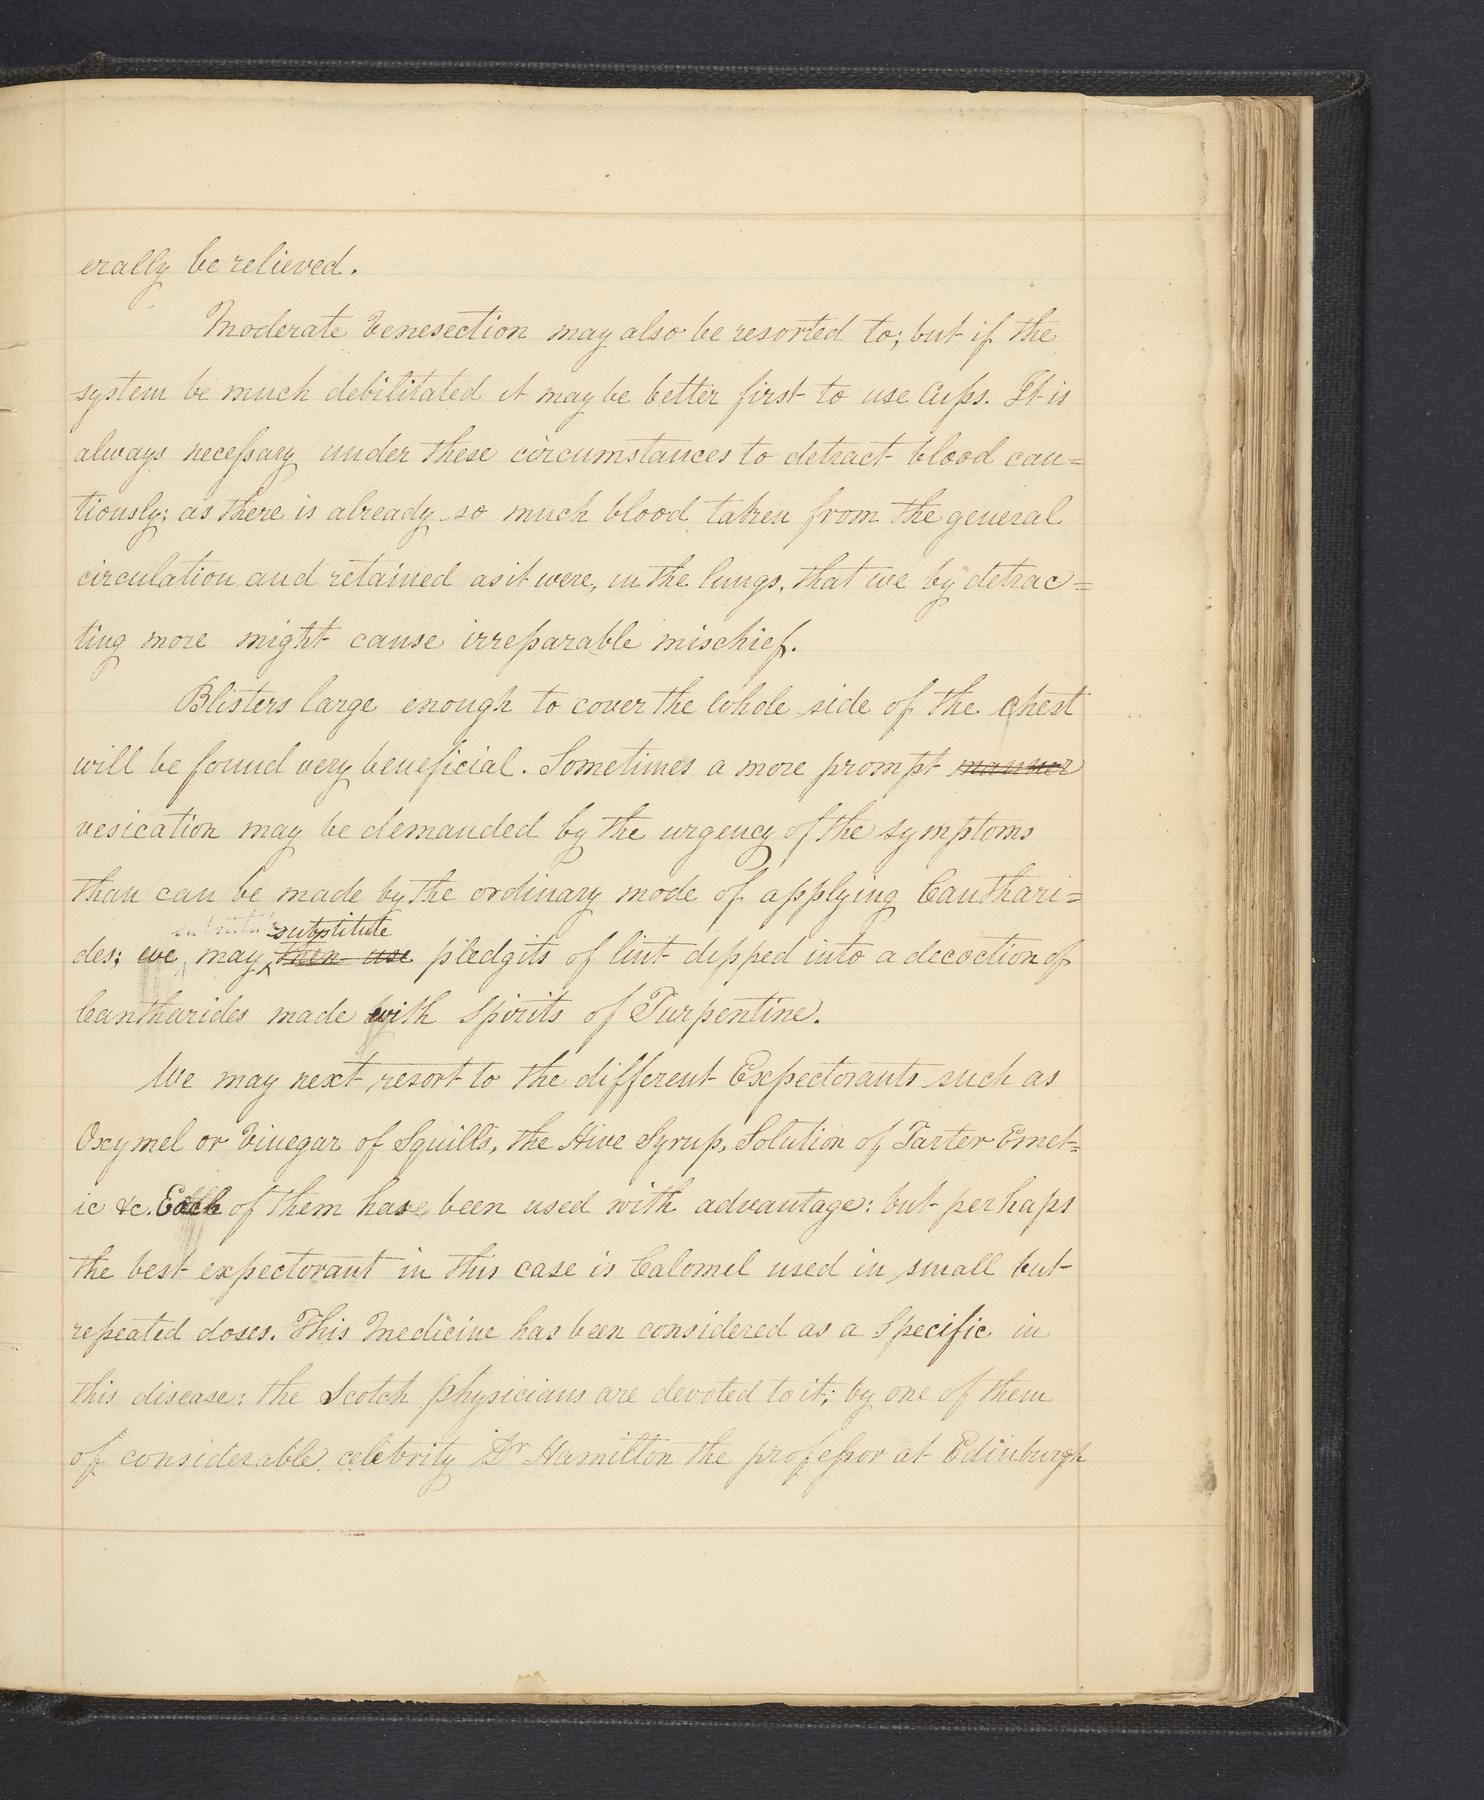 erally be relieved.
Moderate Venesection may also be resorted to; but if the
system be much debilitated it may be better first to use Cups. It is
always necessary under these circumstances to detract blood cau=
tiously; as there is already so much blood taken from the general
circulation and retained as it were, in the lungs, that we by detrac=
ting more might cause irreparable mischief.
Blisters large enough to cover the whole side of the chest
will be found very beneficial. Sometimes a more prompt manner
vesication may be demanded by the urgency of the symptoms
than can be made by the ordinary mode of applying Canthari=
substitute
des; we may then use pledgits of lint dipped into a decoction of
Cantharides made with Spirits of Turpentine.
We may next resort to the different Expectorants such as
Oxymel or Vinegar of Squills, the Hive Syrup, Solution of Tarter Emet=
ic &c. Each of them have been used with advantage: but perhaps
the best expectorant in this case is Calomel used in small but
repeated doses. This Medicine has been considered as a Specific in
this disease: the Scotch physicians are devoted to it; by one of them
of considerable celebrity Dr Hamilton the professor at Edinburgh